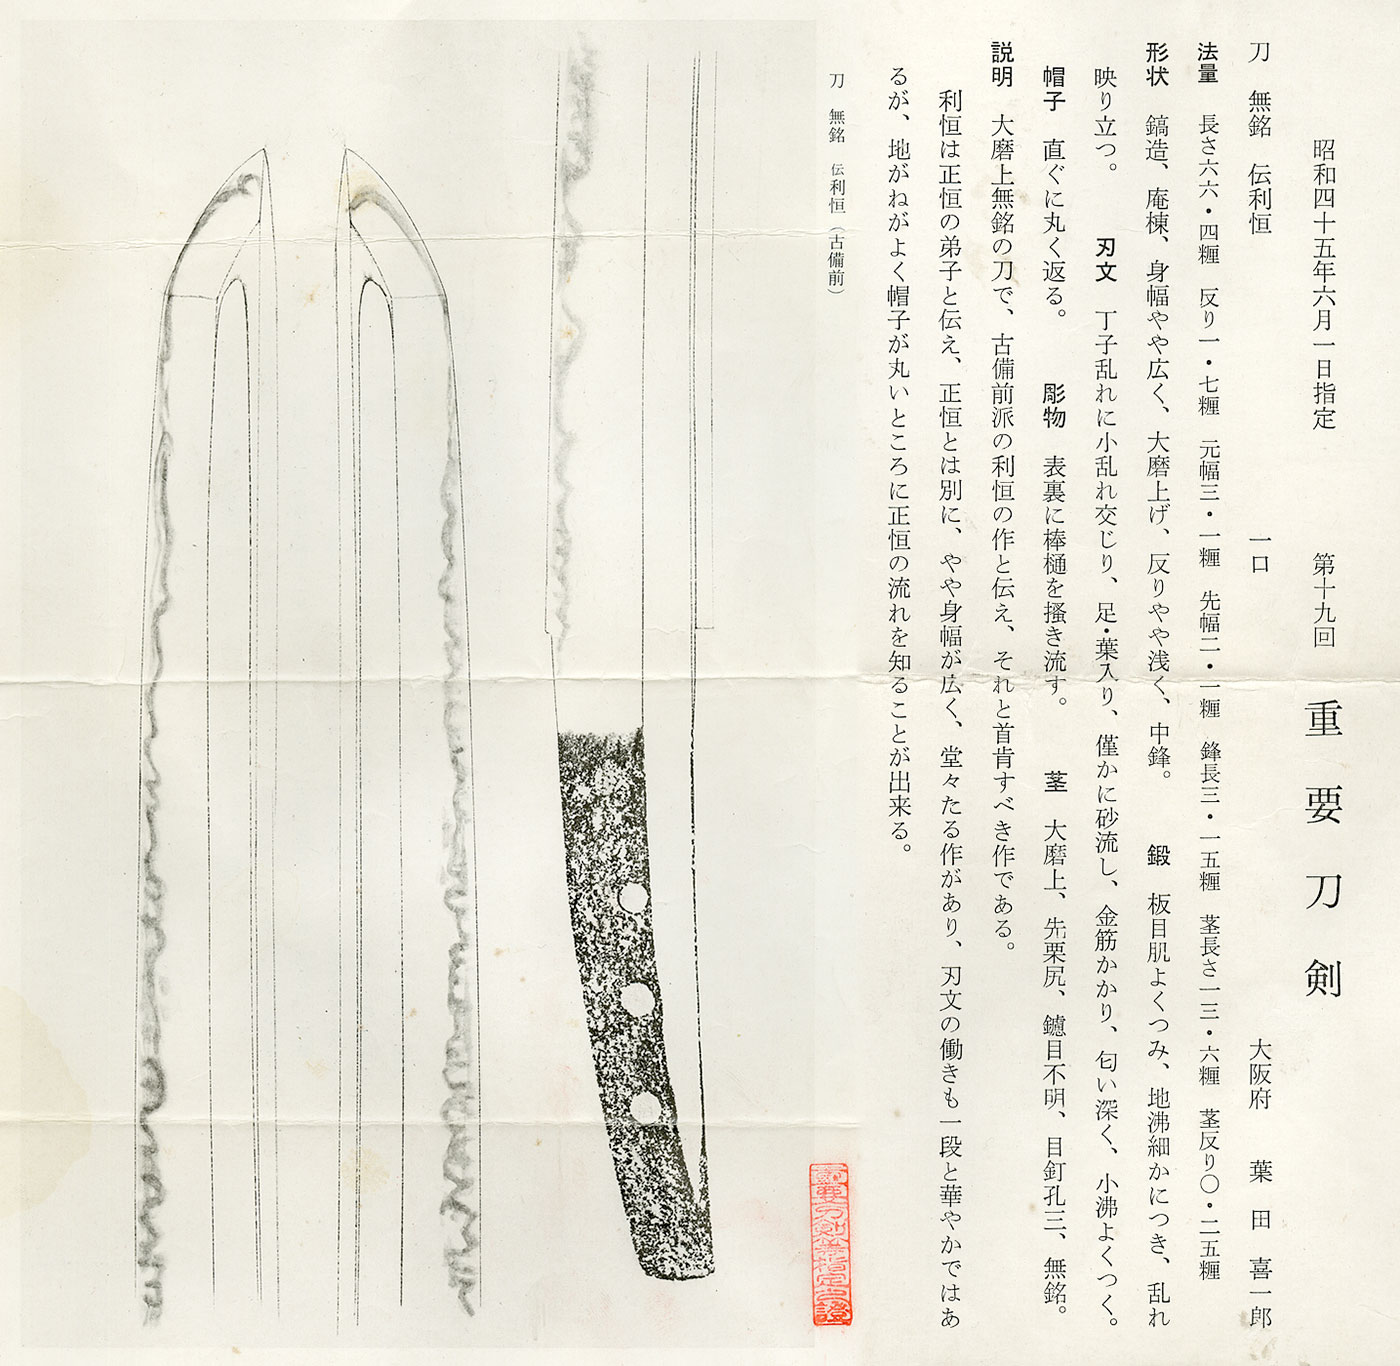 昭和四十五年六月一日指定　第十九回　重要刀剣
刀　無銘　伝利恒　一口　大阪府　葉田喜一郎
法量　長さ六六・四糎　反り一・七糎　元幅三・一糎　先幅二・一糎　鋒長三・一五糎　茎長さ一三・六糎　茎反り〇・二五糎
形状　鎬造、庵棟、身幅やや広く、大磨上げ、反りやや浅く、中鋒。　鍛　板目肌よくつみ、地沸細かにつき、乱れ
映り立つ。　刃文　丁子乱れに小乱れ交じり、足・葉入り、僅かに砂流し、金筋かかり、匂い深く、小沸よくつく。
帽子　直ぐに丸く返る。　彫物　表裏に棒樋を掻き流す。　茎　大磨上、先栗尻、鑢目不明、目釘孔三、無銘。
説明　大磨上無銘の刀で、古備前派の利恒の作と伝え、それと首肯すべき作である。
利恒は正恒の弟子と伝え、正恒とは別に、やや身幅が広く、堂々たる作があり、刃文の働きも一段と華やかではあ
るが、地がねがよく帽子が丸いところに正恒の流れを知ることが出来る。
刀　無銘　伝利恒（古備前）
重要刀剣等指定之證